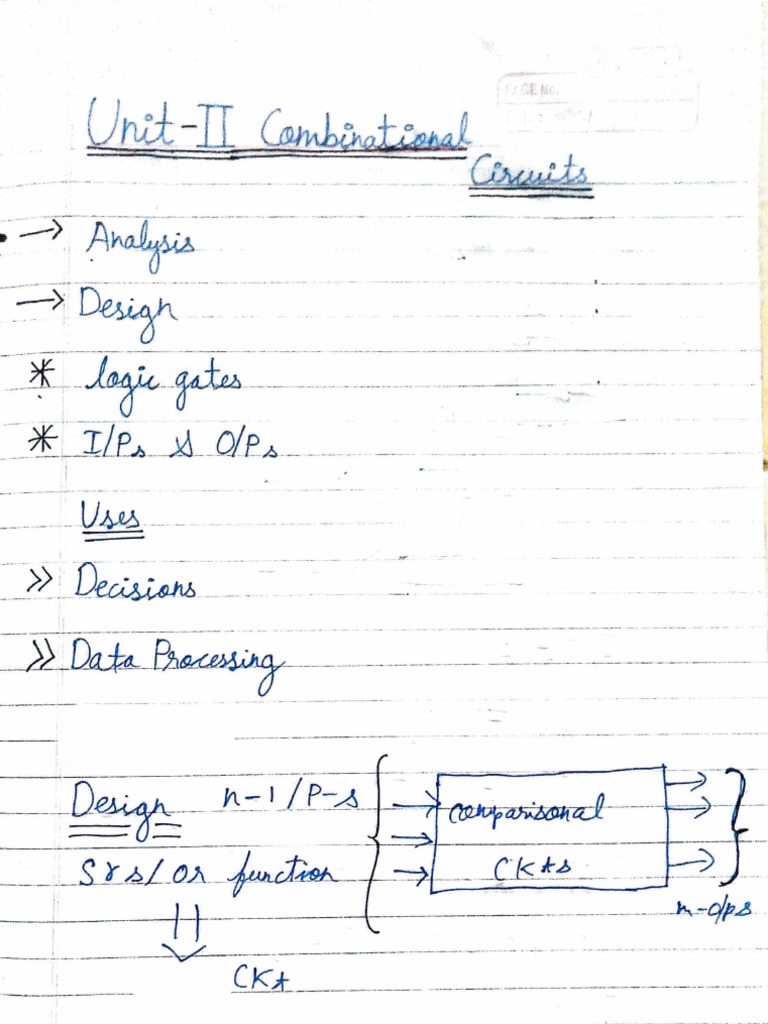 PAGE No.
Unit-II Combinational
Circuits
→ Analysis
→ Design
* logic gates
* I/Ps & O/Ps
Uses
>> Decisions
>> Data Processing
Design n-1/P-s
comparisonal
CKts
Srs/or function
m-o/ps
CKt